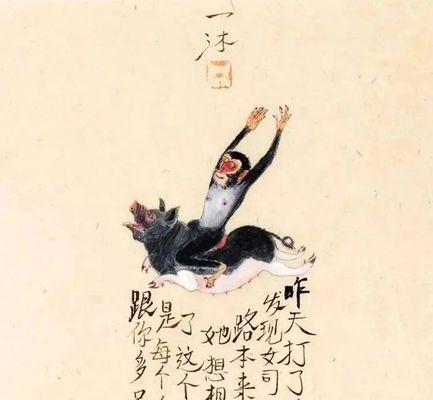 一沐
昨天打了
发现女司
路本来
她想相
了这个
是每个
跟你多